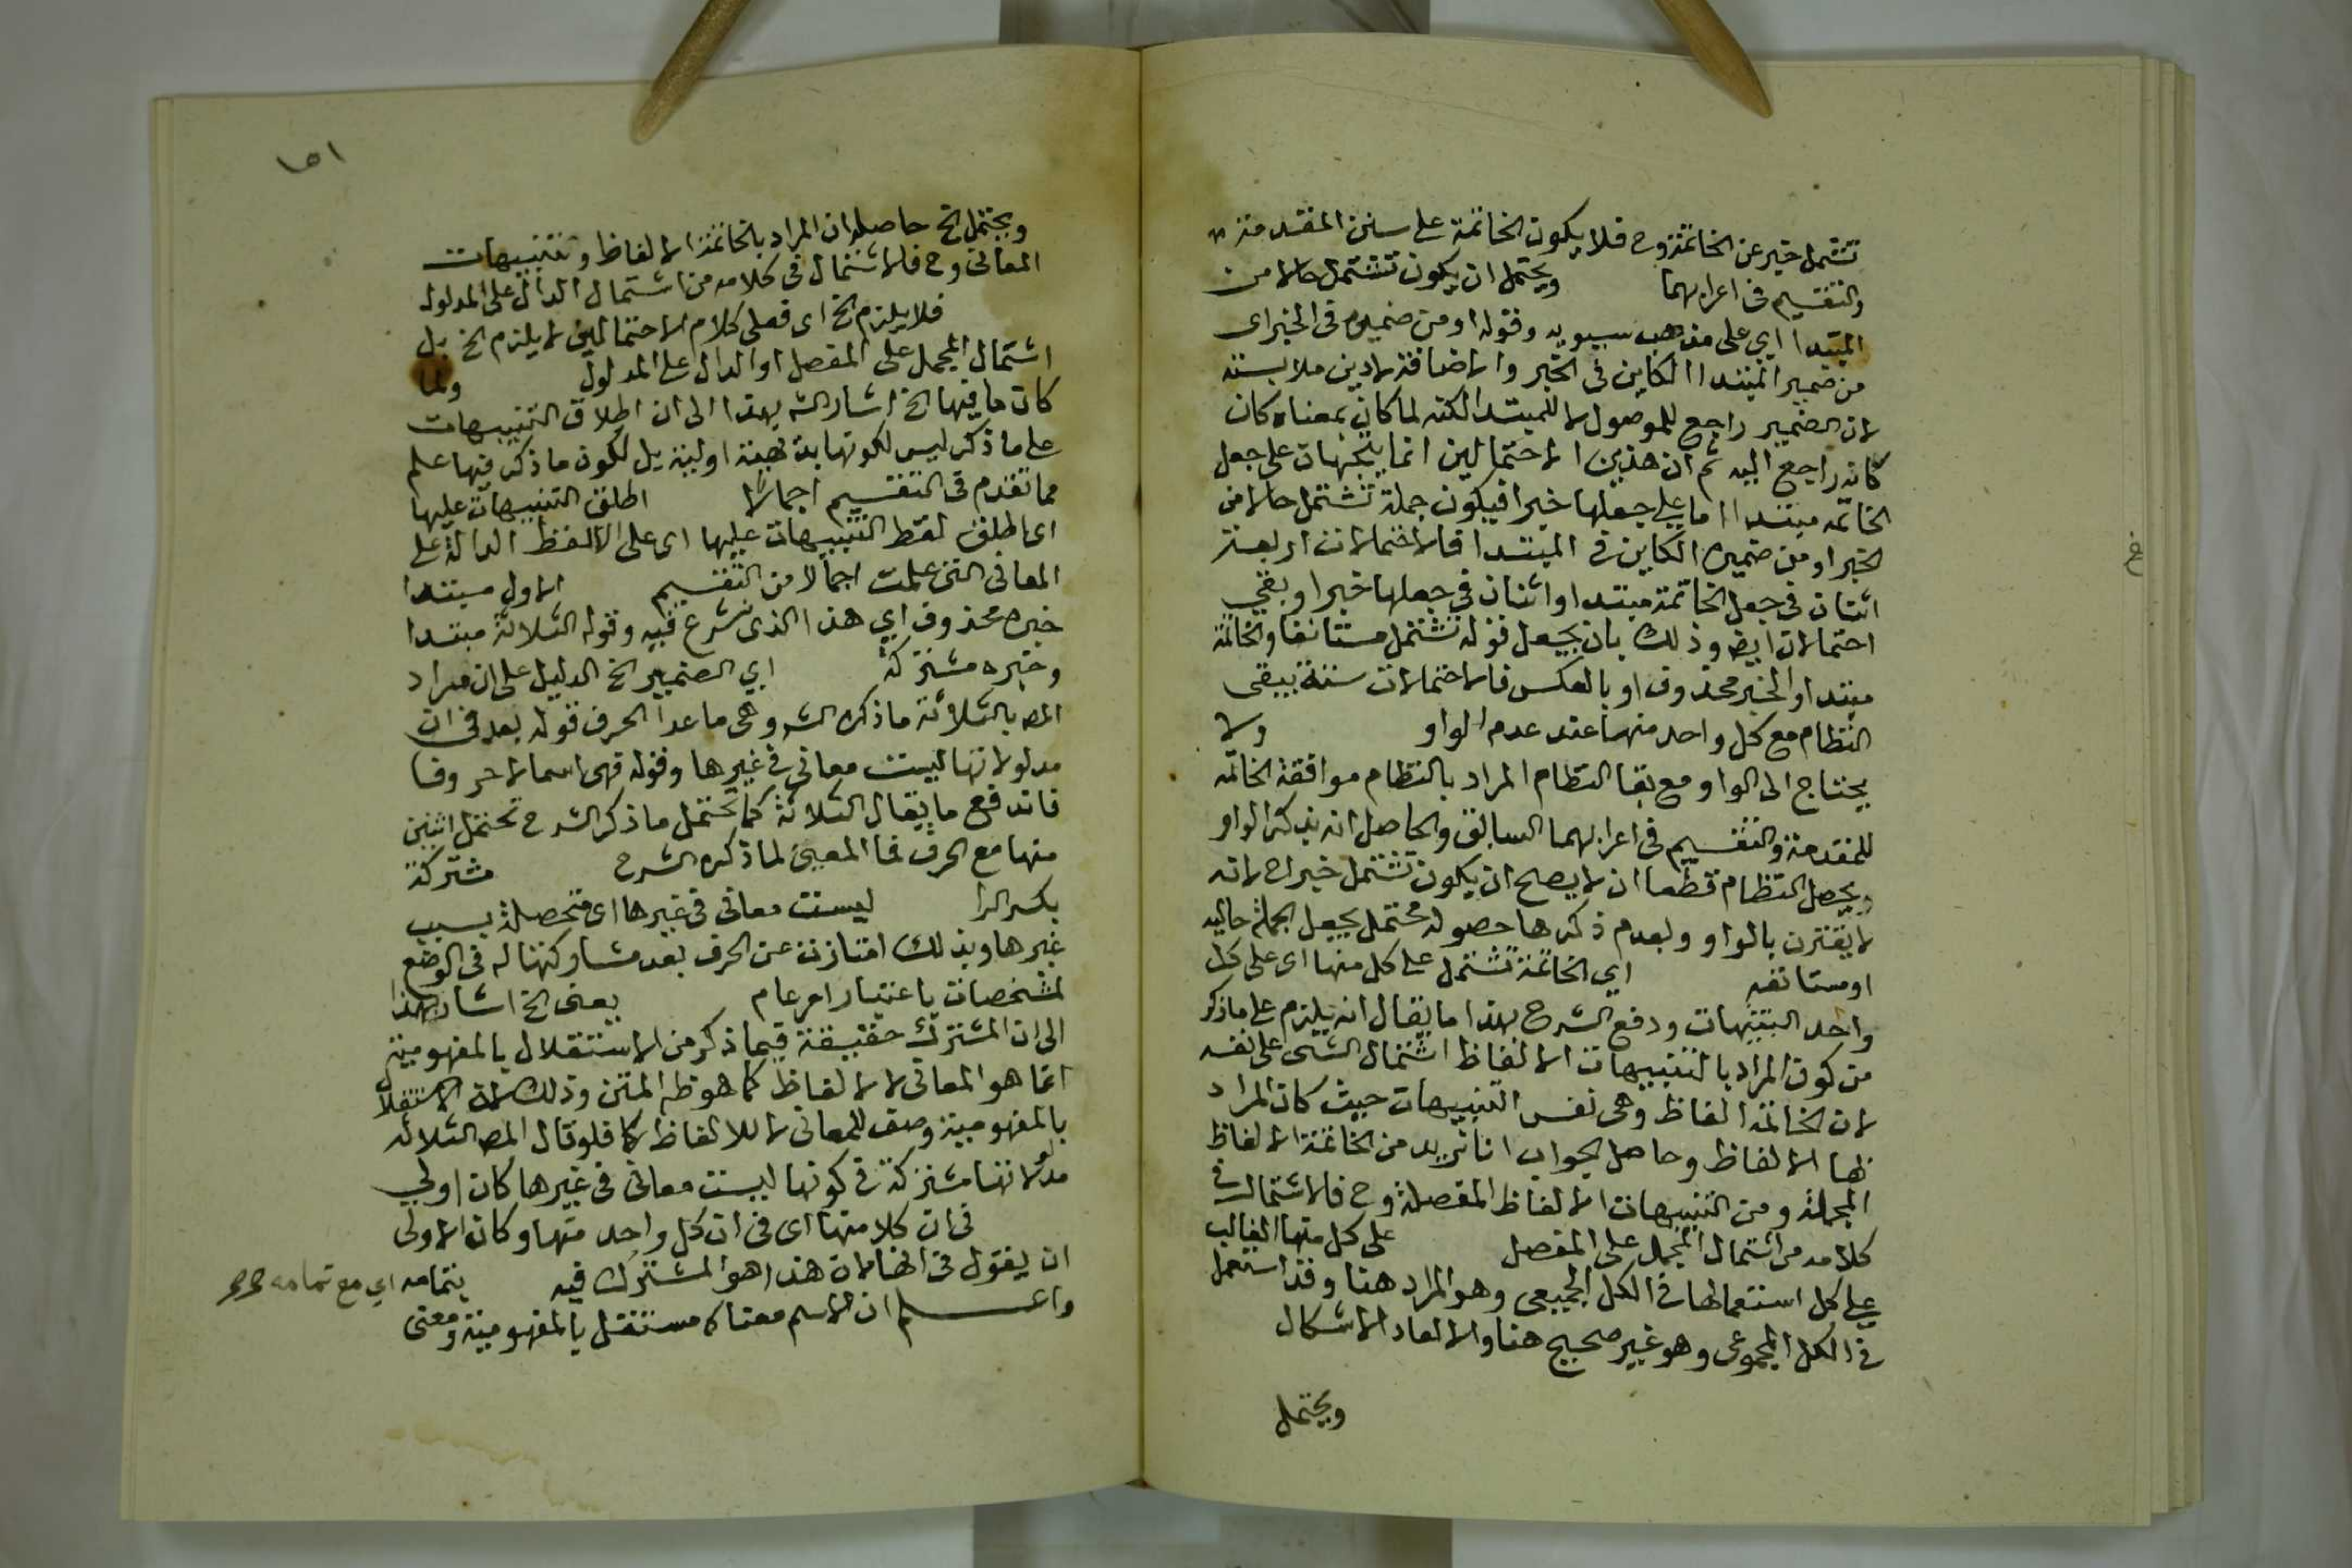 تشتمل خبر عن الخاتمة وح فلا يكون الخاتمة على سنن المقدمة
والتقسيم في اعرابهما ويحتمل ان يكون تشتمل حالا من
المبتدا اي على مذهب سيبويه وقوله او من ضميره في الخبر اى
من ضمير المبتدا الكاين في الخبر والاضافة لادين ملابسته
لان الضمير راجع للموصول لا للمبتدا لكنه لما كان بمعناه كان
كانه راجع اليه ثم ان هذين الاحتمالين انما يتجهان على جعل
الخاتمه مبتدا اما على جعلها خبرا فيكون جملة تشتمل حالا من
الخبر او من ضميره الكاين في المبتدا فالاحتمالات اربعة
اثنان في جعل الخاتمة مبتدا واثنان في جعلها خبرا وبقي
احتمالان ايض وذلك بان يجعل قوله تشتمل مستانفا والخاتمة
مبتدا والخبر محذوف او بالعكس فالاحتمالات ستة يبقى
النظام مع كل واحد منها عند عدم الواو ولا
يحتاج الى الواو مع بقا النظام المراد بالنظام موافقة الخاتمه
للمقدمة والتقسيم في اعرابهما السابق والحاصل انه بذكر الواو
ويحصل النظام قطعا ان لا يصح ان يكون تشتمل خبرا لانه
لا يقترن بالواو وبعدم ذكرها حصوله محتمل بجعل الجملة حاليه
او مستانفه اي الخاتمة تشتمل على كل منها اى على كل
واحد التنبيهات ودفع الشرح بهذا ما يقال انه يلزم على ما ذكر
من كون المراد بالتنبيهات الالفاظ اشتمال الشى على نفسه
لان الخاتمة الفاظ وهى نفس التنبيهات حيث كان المراد
بها الالفاظ وحاصل الجواب انا نريد من الخاتمة الالفاظ
المجملة ومن التنبيهات الالفاظ المفصلة وح فالاشتمال في
كلامه من اشتمال المجمل على المفصل على كل منها الغالب
على كل استعمالها في الكل الجميعى وهو المراد هنا وقد استعمل
في الكل المجموعى وهو غير صحيح هنا والا لعاد الاشكال
ويحتمل
١٥١
ويحتمل الخ حاصله ان المراد بالخاتمة الالفاظ وتنبيهات
المعانى وح فالاشتمال في كلامه من اشتمال الدال على المدلول
فلا يلزم الخ اى فعلى كلام الاحتمالين لا يلزم الخ بل
اشتمال المجمل على المفصل او الدال على المدلول ولما
كان ما فيها الخ اشار الش بهذا الى ان اطلاق التنبيهات
على ما ذكر ليس لكونها بديهية اولية بل لكون ما ذكر فيها علم
مما تقدم في التقسيم اجمالا اطلق التنبيهات عليها
اى اطلق لفظ التنبيهات عليها اى على الالفظ الدالة على
المعانى التى علمت اجمالا من التقسيم الاول مبتدا
خبره محذوف اي هذا الذى نشرع فيه وقوله الثلاثة مبتدا
وخبره مشتركة اي الضمير الخ الدليل على ان مراد
المص بالثلاثة ما ذكره الش وهى ما عدا الحرف قوله بعد في ان
مدلولاتها ليست معانى في غيرها وقوله فهى اسما لا حروفا
فاندفع ما يقال الثلاثة كما تحتمل ما ذكر الشرح تحتمل اثنين
منها مع الحرف فما المعين لما ذكره الشرح مشتركة
بكسر الرا ليست معانى في غيرها اى متحصلة بسبب
غيرها وبذلك امتازت عن الحرف بعد مشاركتها له في الوضع
لمشخصات باعتبار امر عام يعنى الخ اشار بهذا
الى ان المشترك حقيقة فيما ذكر من الاستقلال بالمفهومية
انما هو المعانى لا الالفاظ كما هو ظ المتن وذلك لان الاستقلال
بالمفهومية وصف للمعانى لا للالفاظ فلو قال المص الثلاثه
مدلولاتها مشتركة في كونها ليست معانى في غيرها كان اولي
في ان كلا منها اى في ان كل واحد منها وكان الاولى
ان يقول في انها لان هذا هو المشترك فيه بتمامه اي مع تمامه
واعلم ان الاسم معناه مستقل بالمفهومية ومعنى